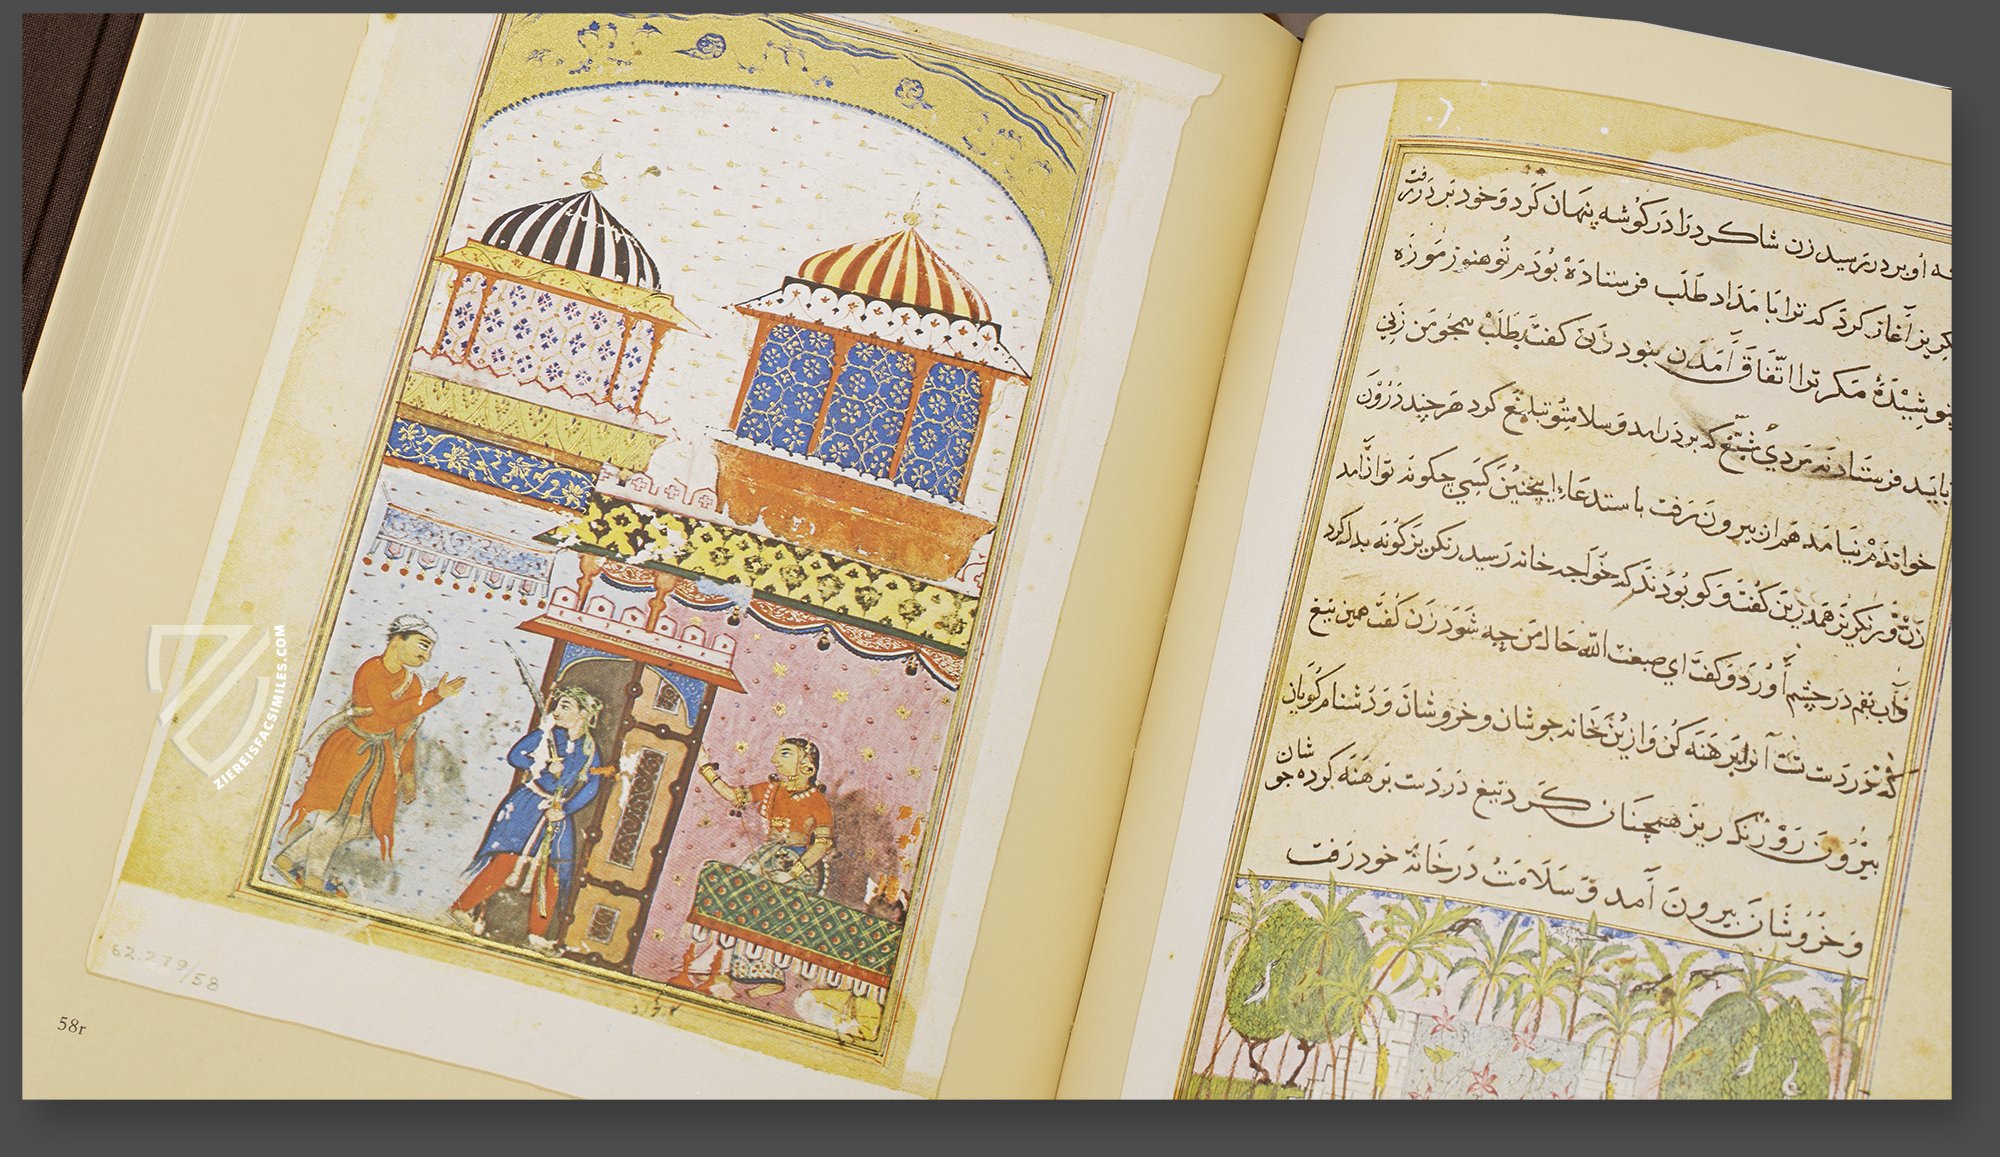 62.279/58
58r
ZIEREISFACSIMILES.COM
او بر در رسید زن شاکردرا در کوشه پنهان کرد و خود بر در رفت
آغاز کرد که ترا بامداد طلب فرستاده بودم تو هنوز موزه
مکر ترا اتفاق آمدن نبود زن کفت بطلب همچو من زنی
باید فرستاد نه مردی که بر در آمد و سلام تو تبلیغ کرد هر چند درون
خواندم نیامد هم از بیرون رفت باستدعاء اینچنین کسی چکونه توان آمد
زن و رنکریز همدرین کفت و کو بودند که خواجه خانه رسید رنکریز کونه بدل کرد
و آب بقم در چشم آورد و کفت ای صبغت الله حال من چه شود زن کفت همین تیغ
که در دست تست آنرا برهنه کن و ازین خانه جوشان و خروشان و دشنام کویان
بیرون رو رنکریز همچنان کرد تیغ در دست برهنه کرده جوشان
و خروشان بیرون آمد و سلامت در خانه خود رفت